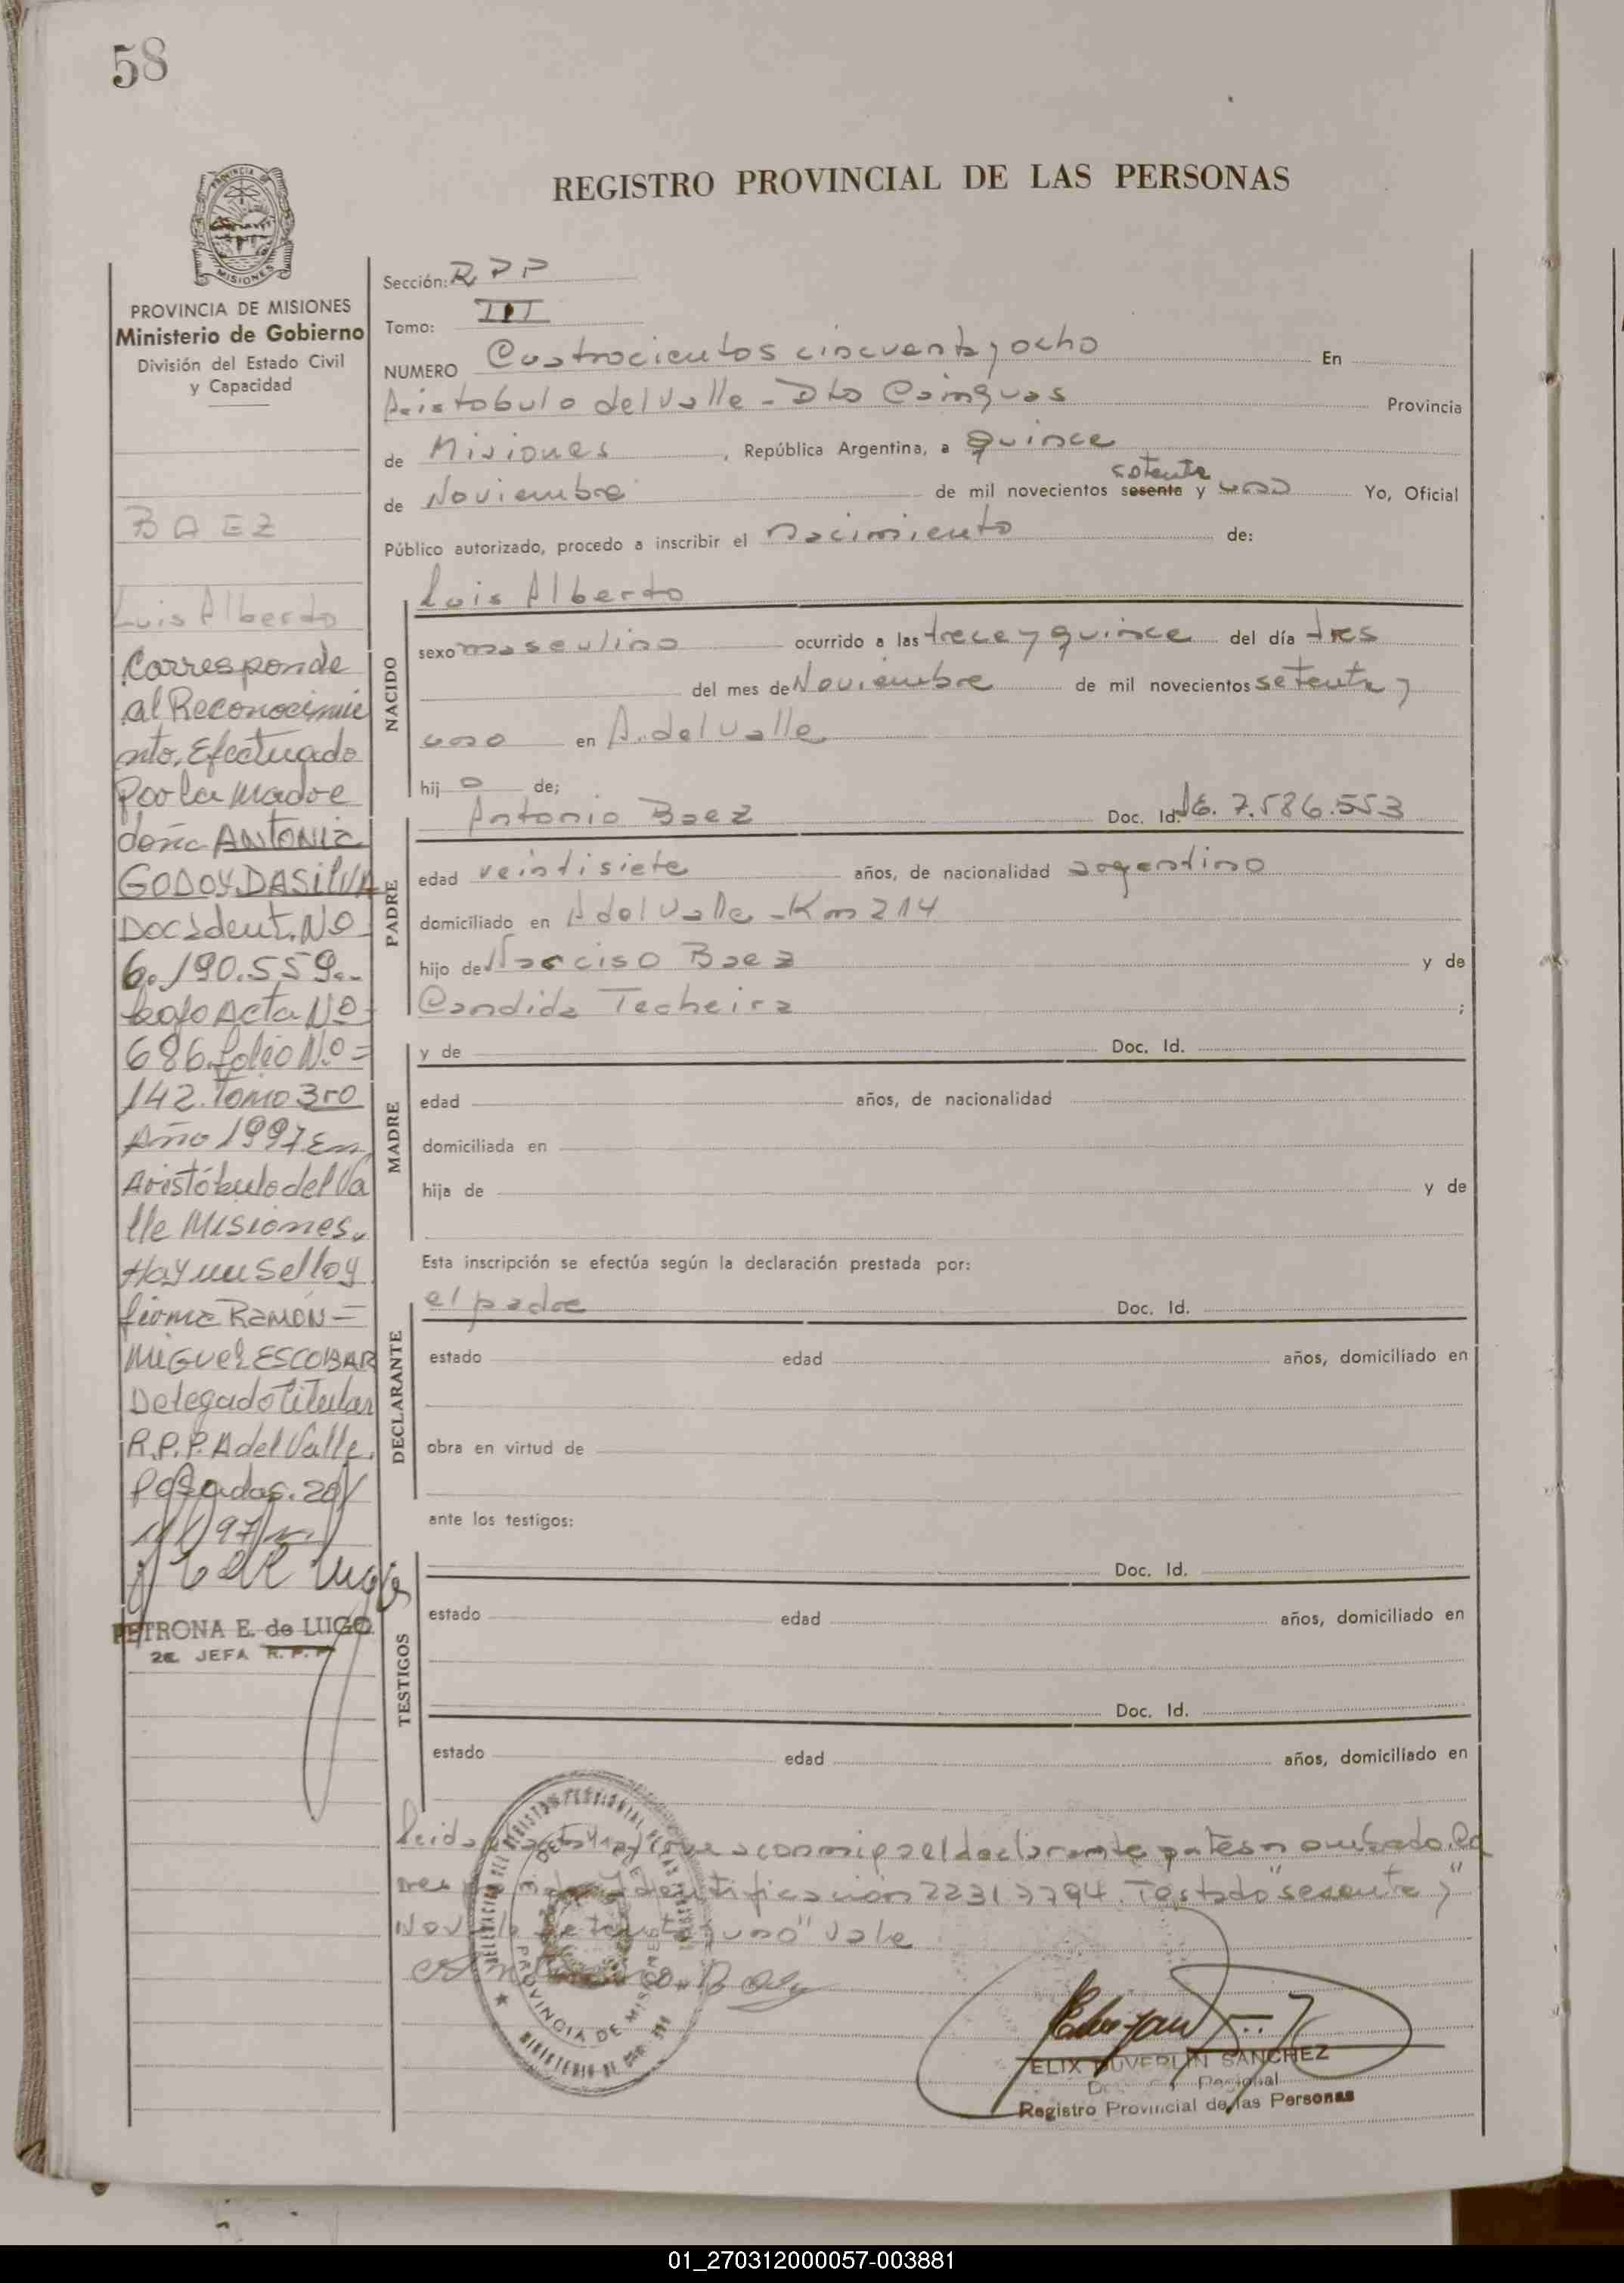 58
REGISTRO PROVINCIAL DE LAS PERSONAS
PROVINCIA DE MISIONES
Ministerio de Gobierno
División del Estado Civil
y Capacidad
BAEZ
Luis Alberto
Corresponde
al Reconocimie
nto. Efectuado
Por la Madre
doña ANTONIA
GODOY DASILVA
Doc Ident. Nº
6.190.559.-
bajo Acta Nº
686 folio Nº=
142. Tomo 3ro
Año 1997 En
Aristóbulo del Va
lle Misiones.
Hay un Sello y
firma RAMON=
MIGUEL ESCOBAR
Delegado Titular
R.P.P. A del Valle.
Posadas. 20/
11/97
PETRONA E. de LUGO
2a. JEFA R. P. P.
Sección: RPP
Tomo: III
NUMERO Cuatrocientos cincuenta y ocho En
Aristobulo del Valle - Dto Cainguas Provincia
de Misiones, República Argentina, a quince
de Noviembre de mil novecientos sesenta setenta y uno Yo, Oficial
Público autorizado, procedo a inscribir el nacimiento de:
NACIDO
Luis Alberto
sexo masculino ocurrido a las trece y quince del día tres
del mes de Noviembre de mil novecientos setenta y
uno en A. del Valle
hij o de;
PADRE
Antonio Baez Doc. Id. 7.586.553
edad veintisiete años, de nacionalidad argentino
domiciliado en A del Valle - Km 214
hijo de Narciso Baez y de
Candida Techeira ;
MADRE
y de Doc. Id.
edad años, de nacionalidad
domiciliada en
hija de y de
Esta inscripción se efectúa según la declaración prestada por:
DECLARANTE
el padre Doc. Id.
estado edad años, domiciliado en
obra en virtud de
ante los testigos:
TESTIGOS
Doc. Id.
estado edad años, domiciliado en
Doc. Id.
estado edad años, domiciliado en
Leida conmigo el declarante antes nombrado.
identificación 22317794. Testado "sesenta y"
uno" Vale
PROVINCIA DE MISIONES
ELIX DUVERLIN SANCHEZ
Registro Provincial de las Personas
01_270312000057-003881